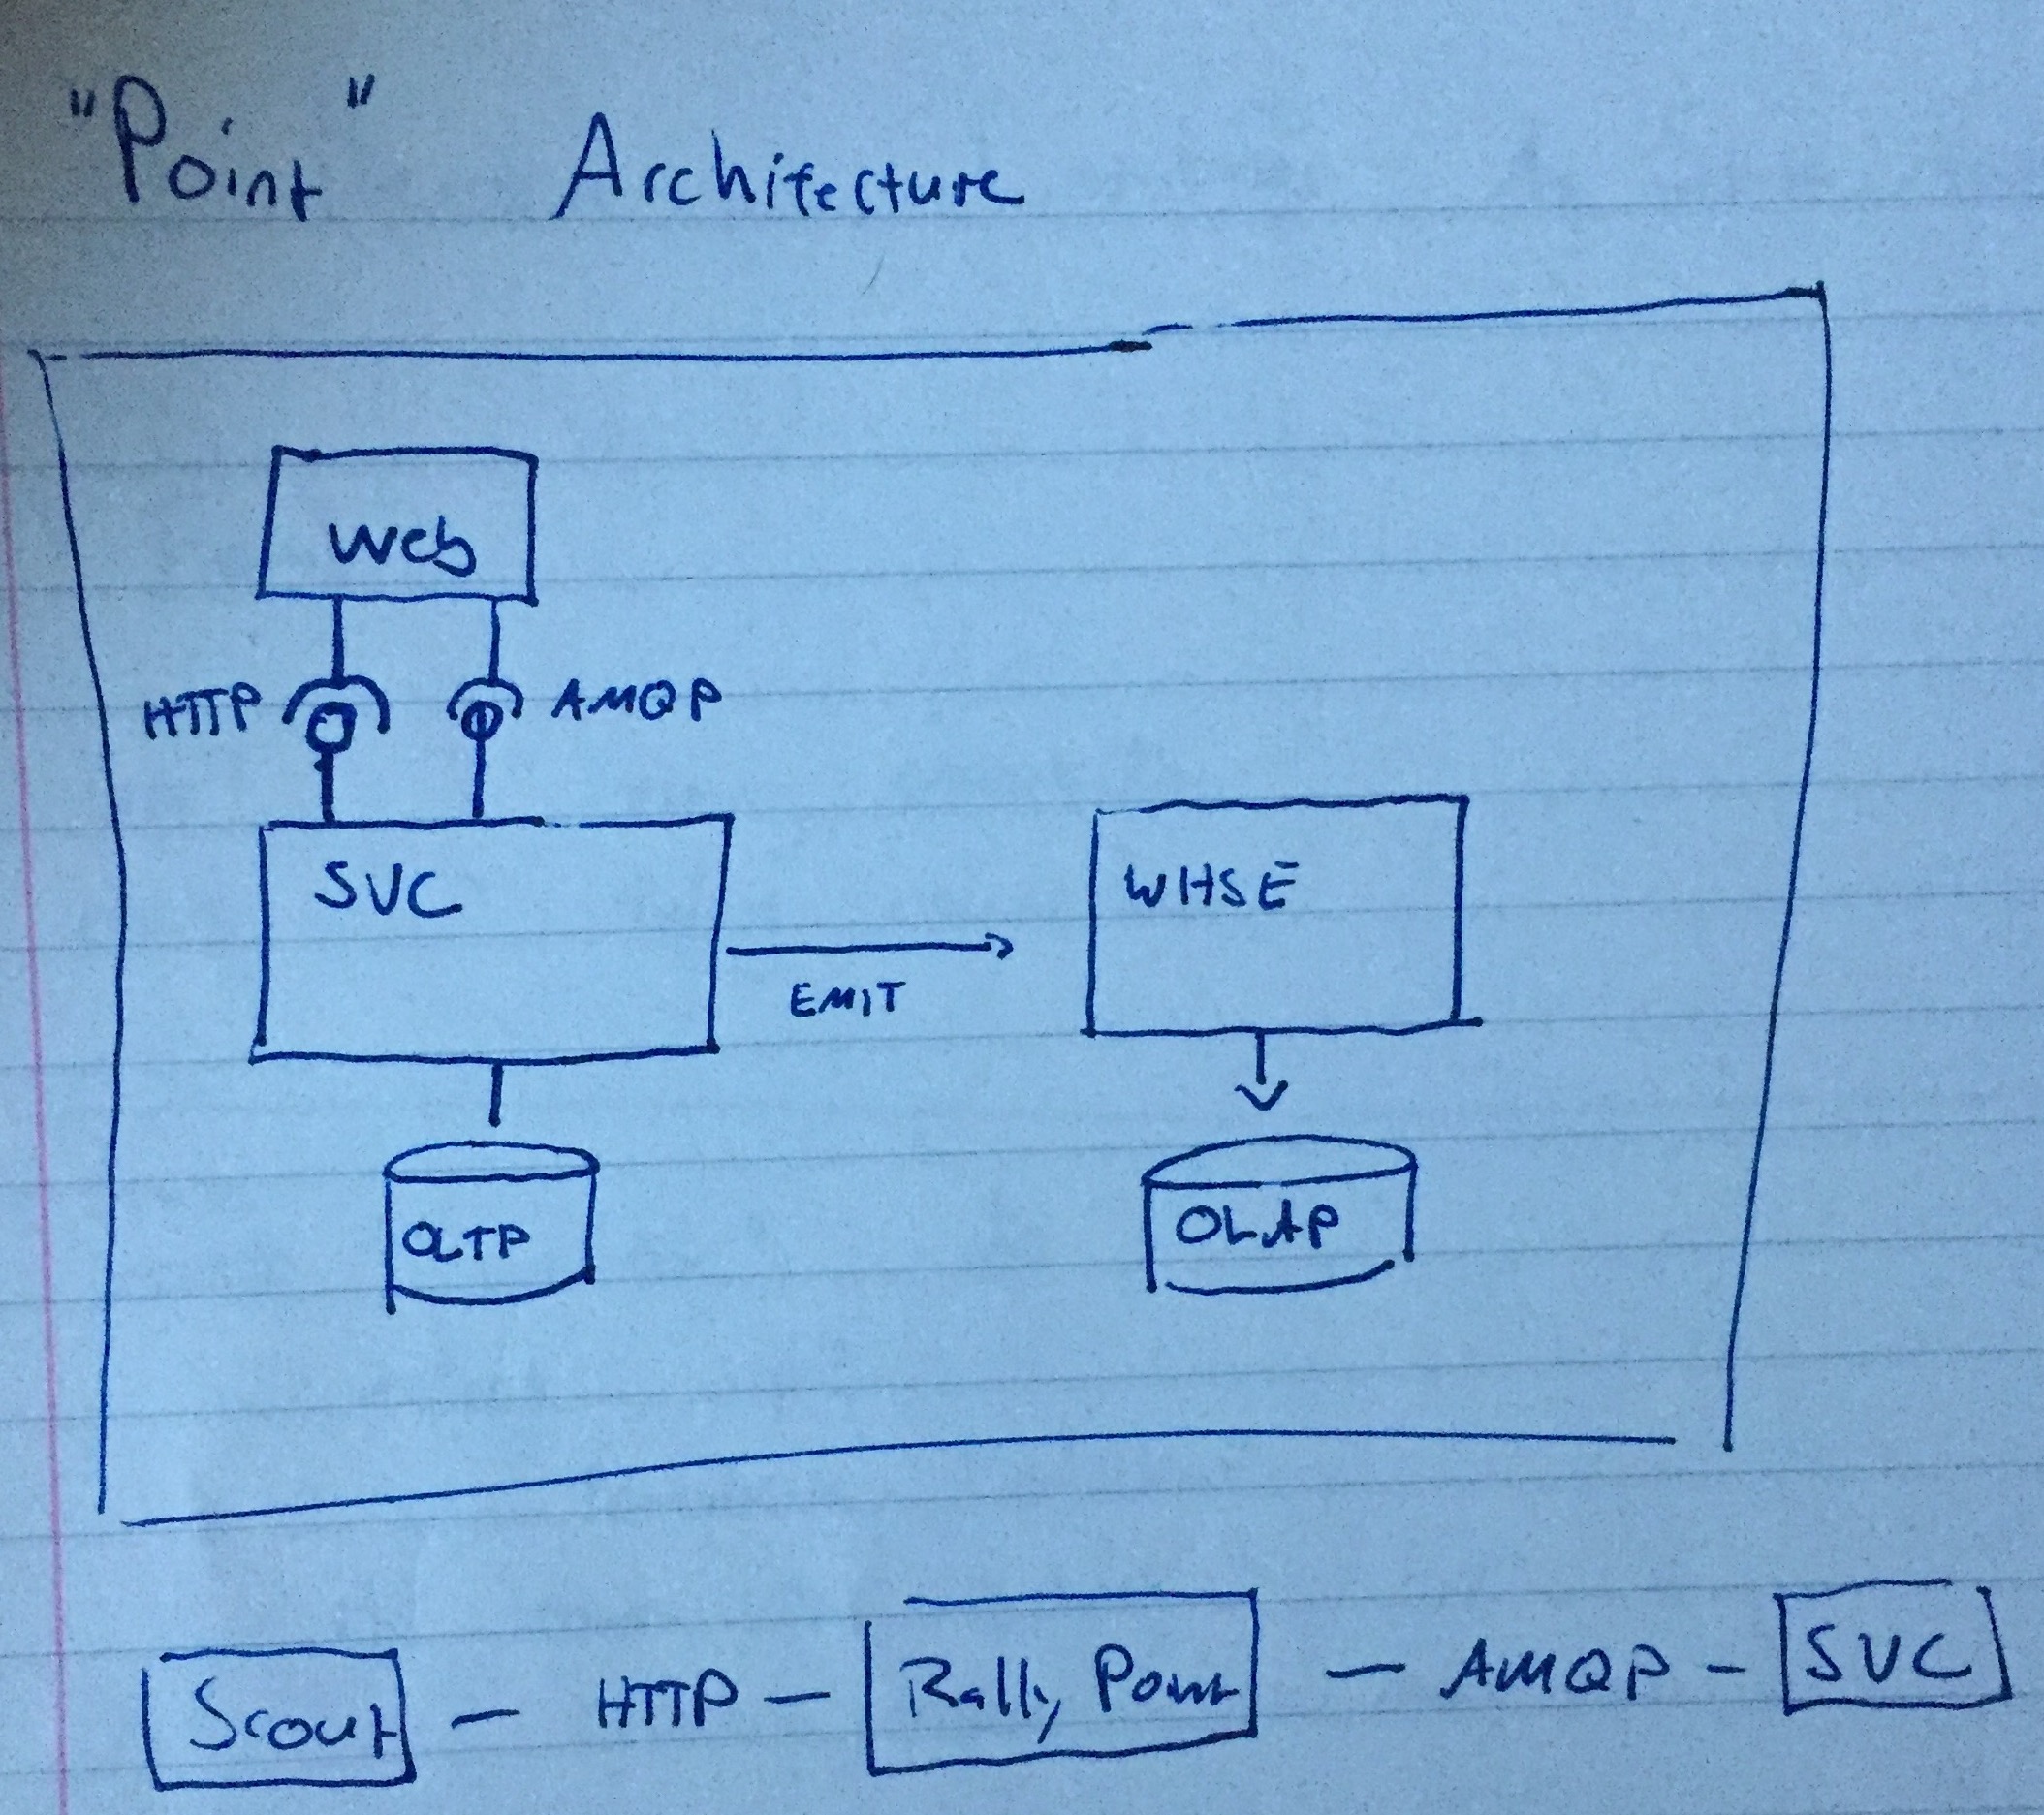 "Point" Architecture
Web
HTTP AMQP
SVC WHSE
EMIT
OLTP OLAP
Scout - HTTP - Rally Point - AMQP - SVC